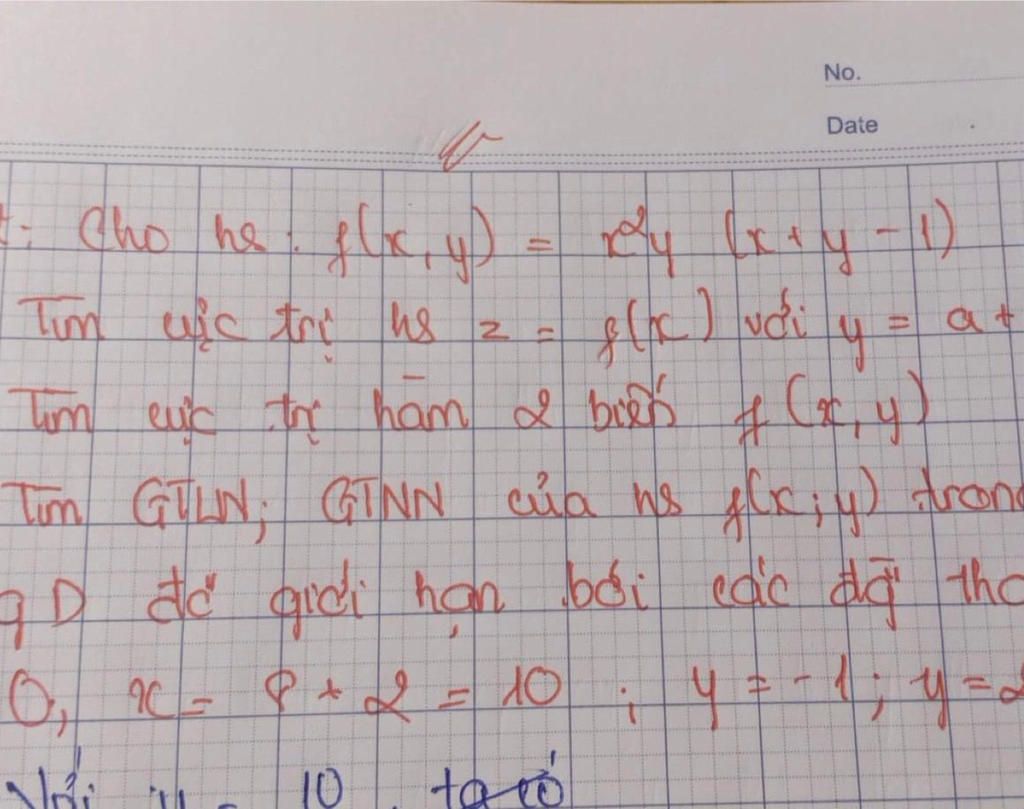 No.
Date
Cho hs : f(x,y) = x²y (x + y - 1)
Tìm cực trị hs z = f(x) với y = a +
Tìm cực trị hàm 2 biến f(x,y)
Tìm GTLN; GTNN của hs f(x;y) trong
D đc giới hạn bởi các đg
0, x = 8 + 2 = 10 ; y = -1; y = 2
Với y = 10 ta có